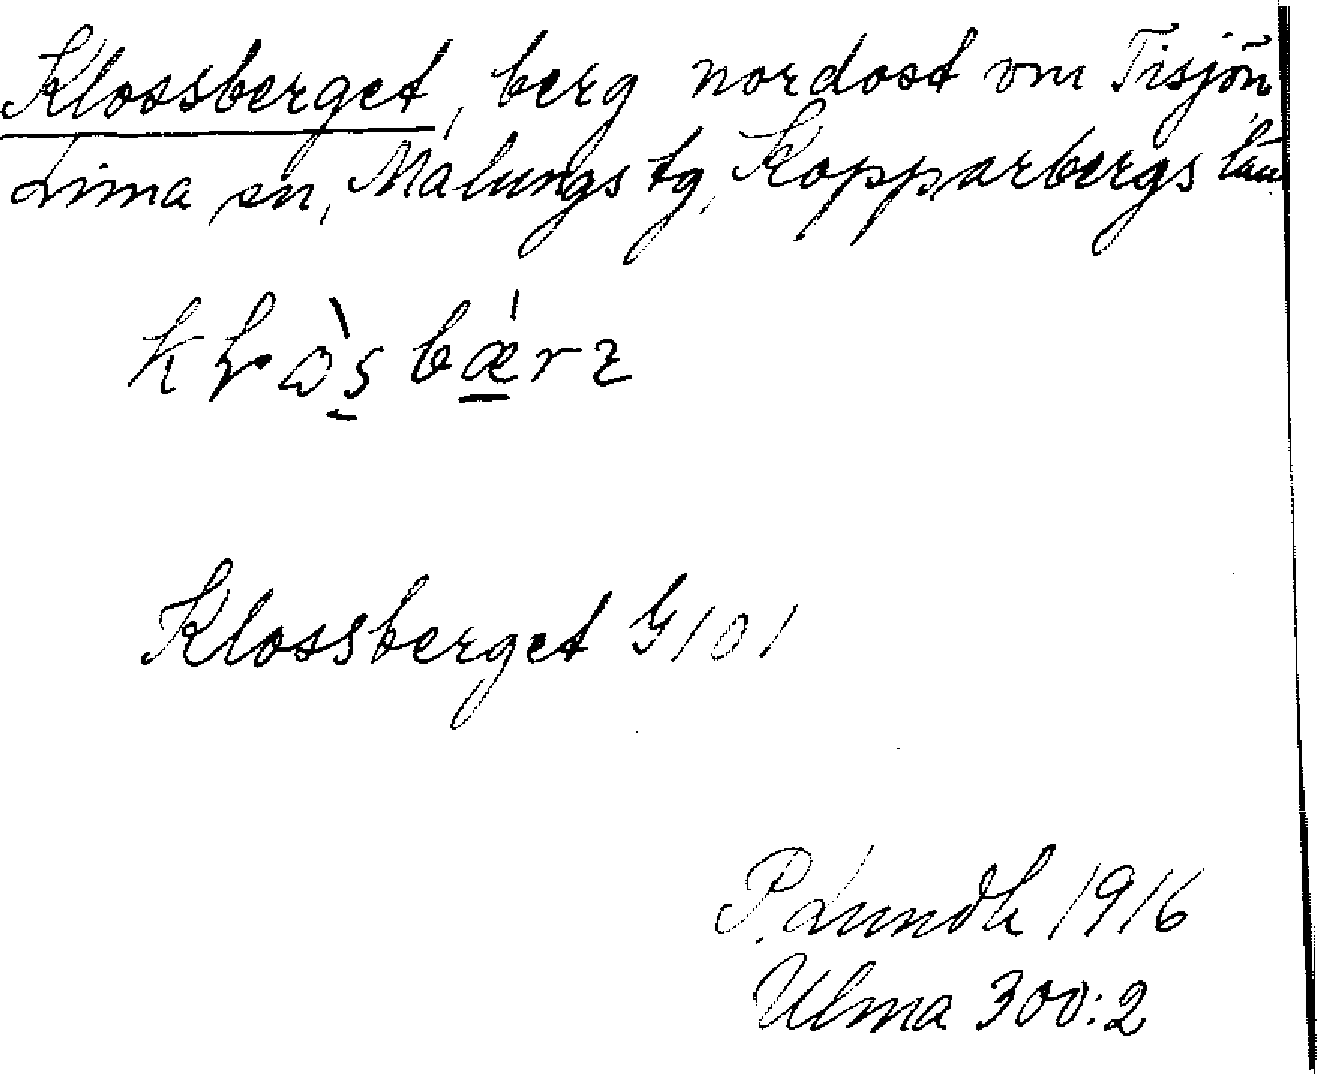 Klossberget, berg nordost om Tisjön,
Lima sn, Malungs tg, Kopparbergs län.
Klossberget G101
P. Lundh 1916
Ulma 300:2